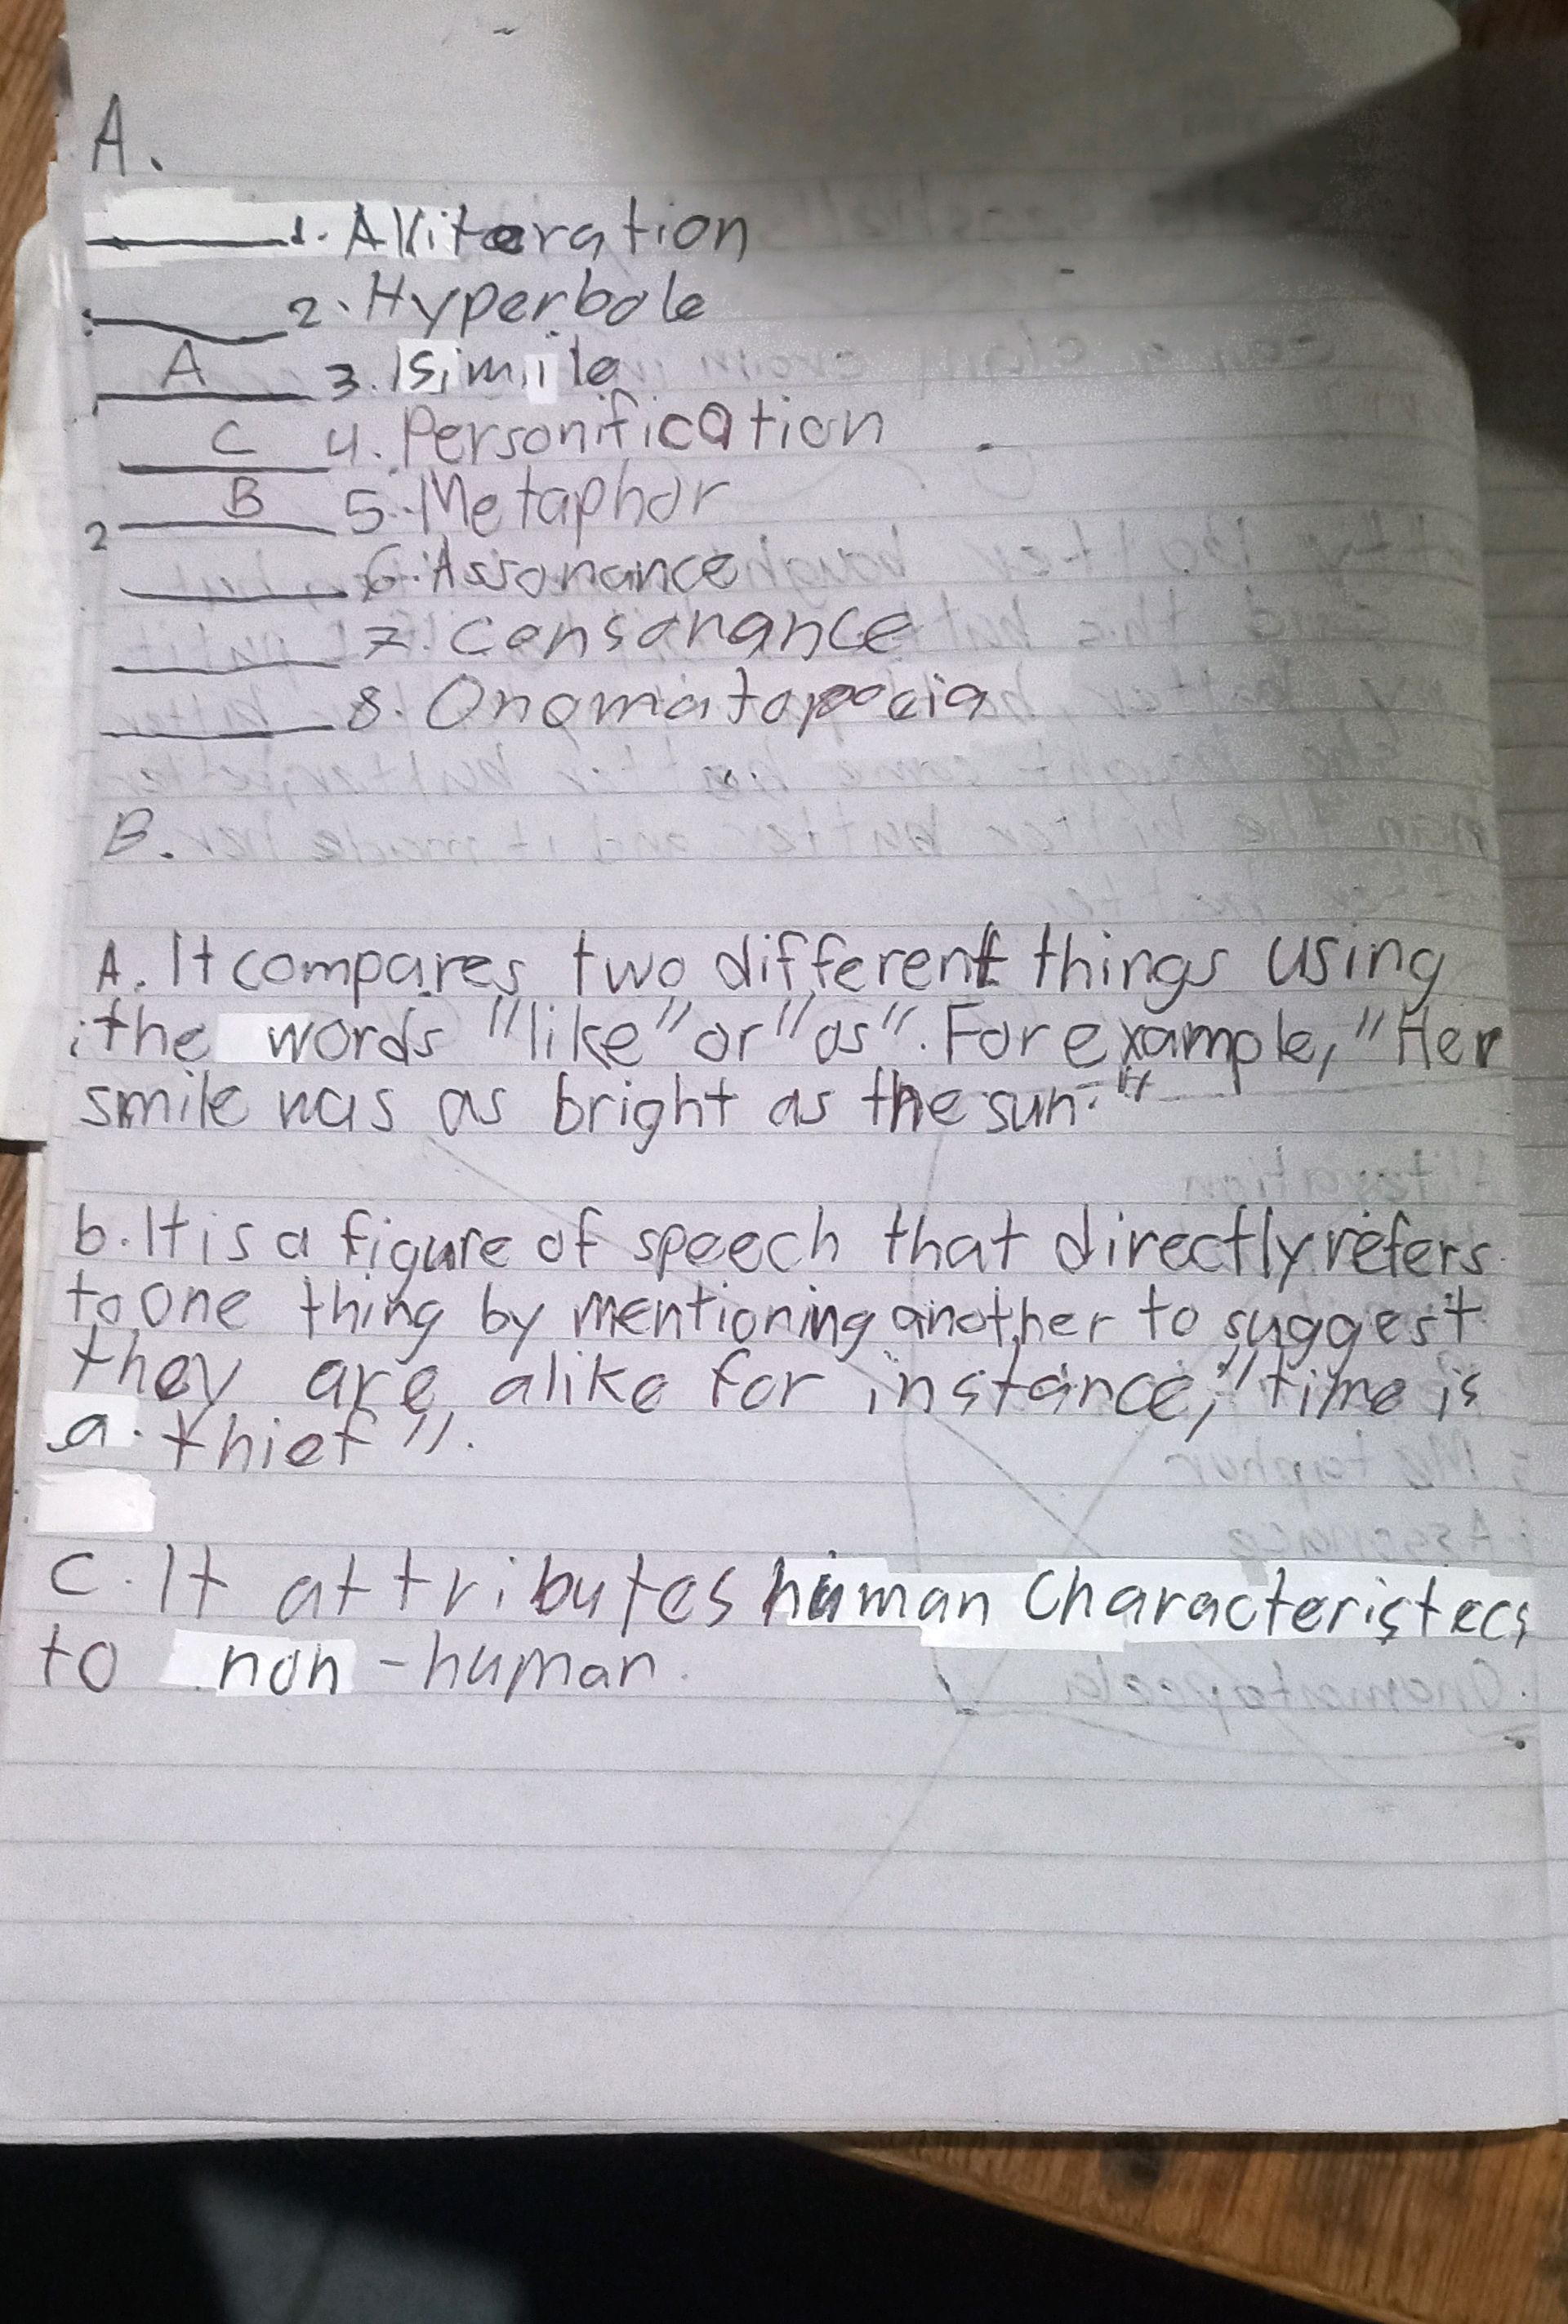 A.
1. Alliteration
2. Hyperbole
A 3. Simile
C 4. Personification
B 5. Metaphor
2
6. Assonance
7. Consonance
8. Onomatopoeia
B.
A. It compares two different things using
the words "like" or "as". For example, "Her
smile was as bright as the sun."
b. It is a figure of speech that directly refers
to one thing by mentioning another to suggest
they are alike for instance, "time is
a thief".
C. It attributes human characteristecs
to non-human.